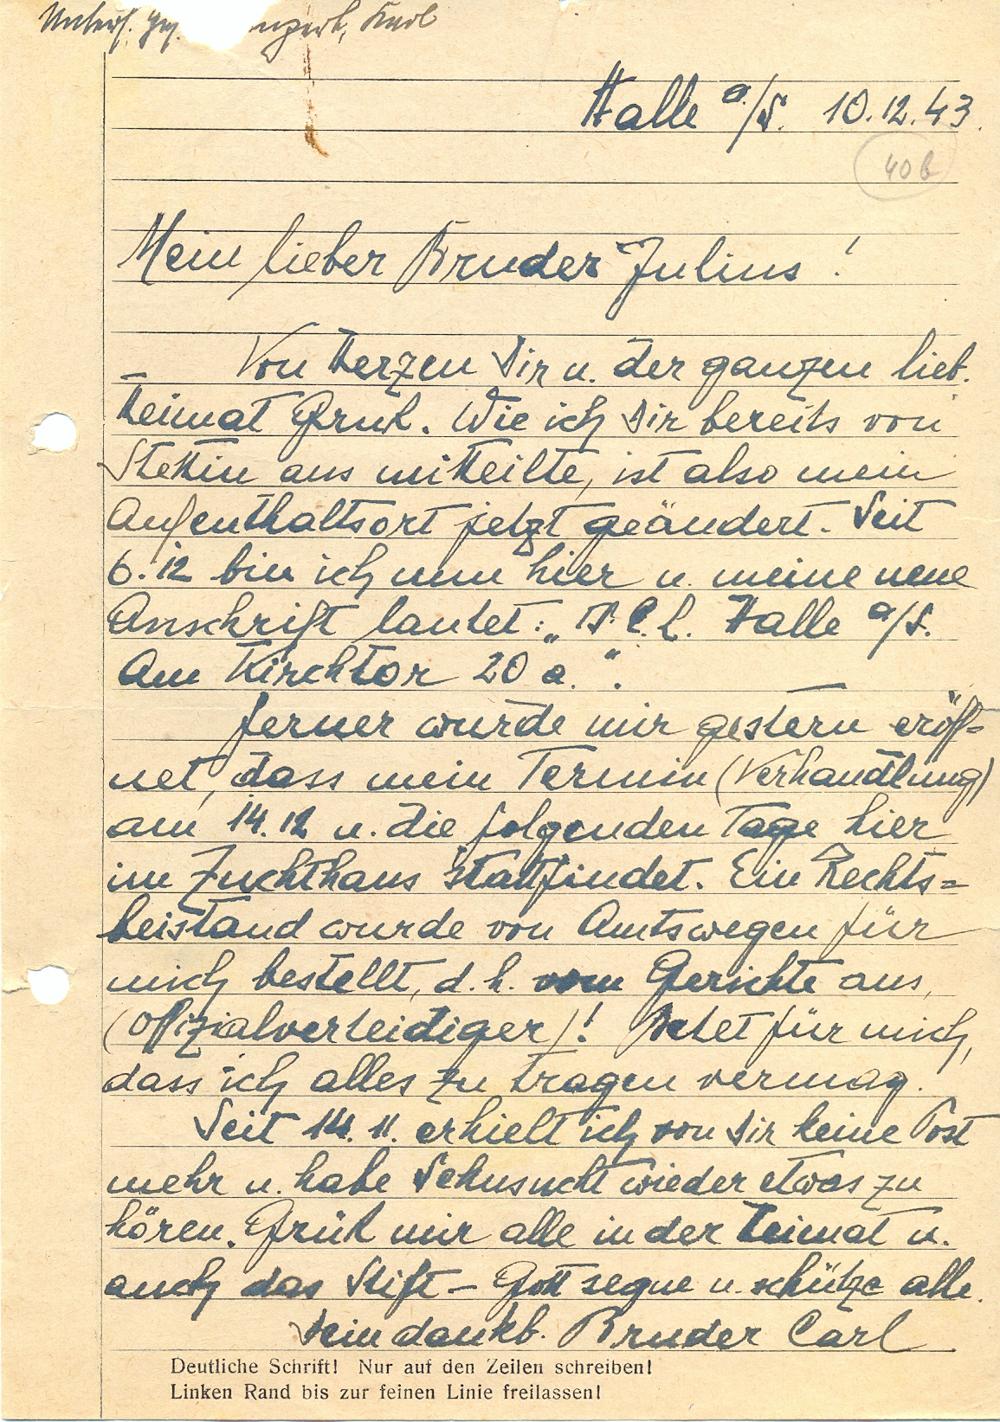 Unters. Gef. Karl
Halle a/S. 10.12.43.
40b
Mein lieber Bruder Julius!
Von Herzen Dir u. der ganzen lieb.
Heimat Gruß. Wie ich Dir bereits von
Stettin aus mitteilte, ist also mein
Aufenthaltsort jetzt geändert. Seit
6.12 bin ich nun hier u. meine neue
Anschrift lautet: „ Halle a/S.
Am Kirchtor 20 a.".
Ferner wurde mir gestern eröff-
net, dass mein Termin (Verhandlung)
am 14.12 u. die folgenden Tage hier
im Zuchthaus stattfindet. Ein Rechts=
beistand wurde von Amtswegen für
mich bestellt, d.h. vom Gerichte aus,
(Offizialverteidiger)! Betet für mich,
dass ich alles zu tragen vermag.
Seit 14.11. erhielt ich von Dir keine Post
mehr u. habe Sehnsucht wieder etwas zu
hören. Grüß mir alle in der Heimat u.
auch das Stift – Gott segne u. schütze alle.
Dein dankb. Bruder Carl
Deutliche Schrift! Nur auf den Zeilen schreiben!
Linken Rand bis zur feinen Linie freilassen!